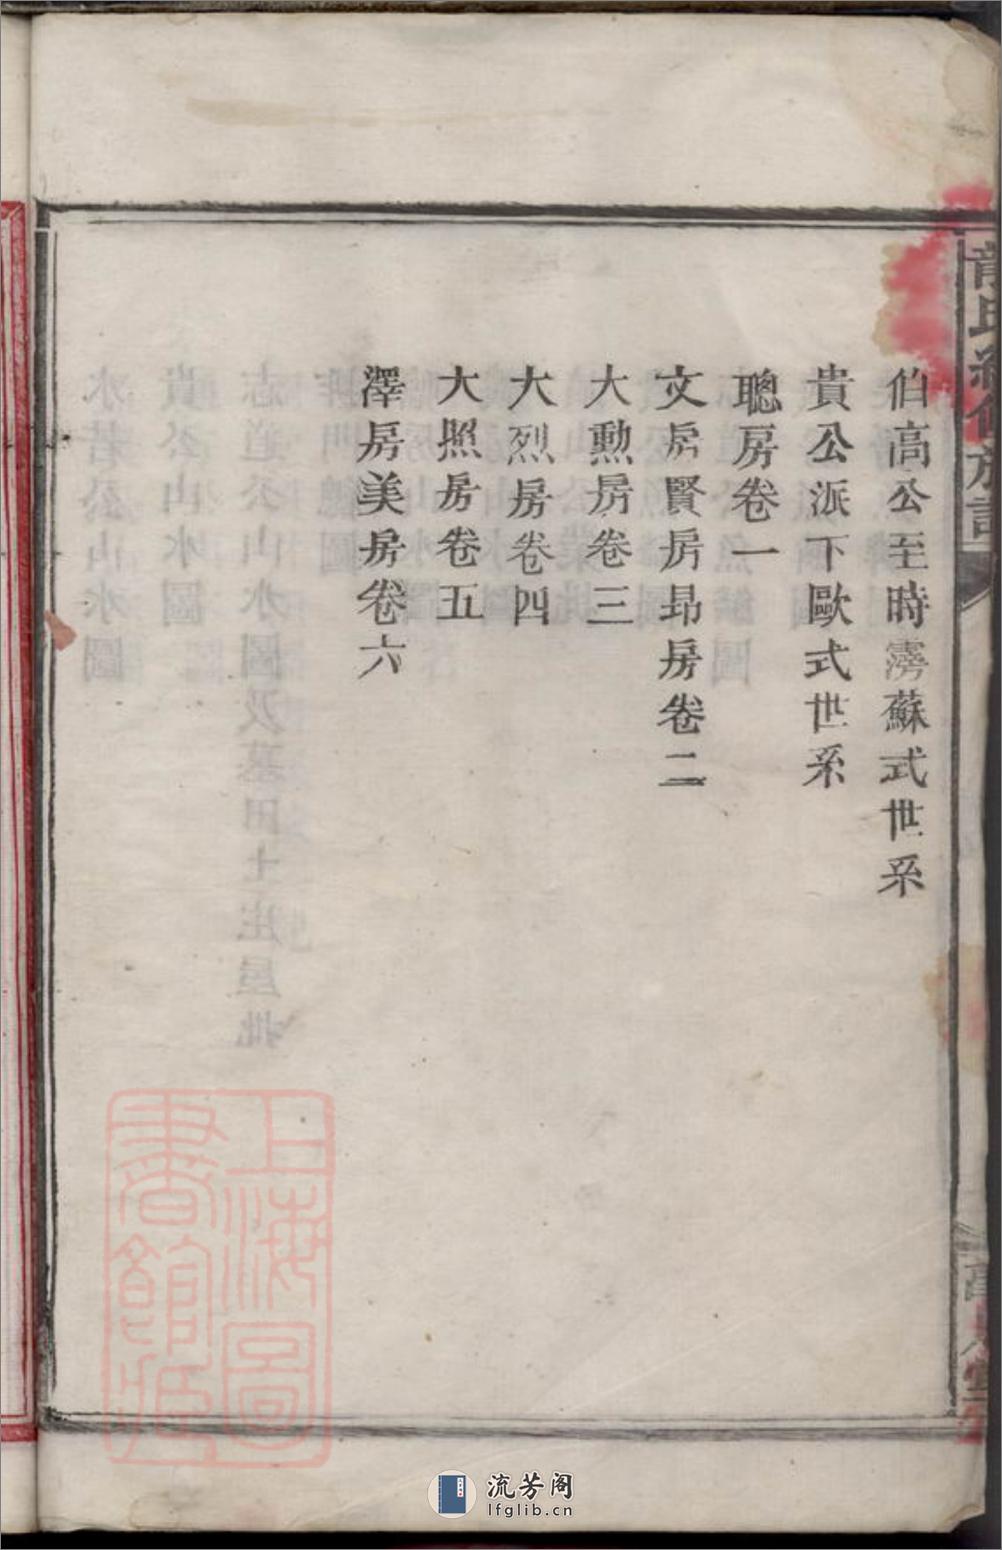 伯高公至時雱蘇式世系
貴公派下歐式世系
聰房卷一
文房賢房昻房卷二
大勲房卷三
大烈房卷四
大照房卷五
澤房美房卷六
上海圖
書館藏
流芳阁
lfglib.cn